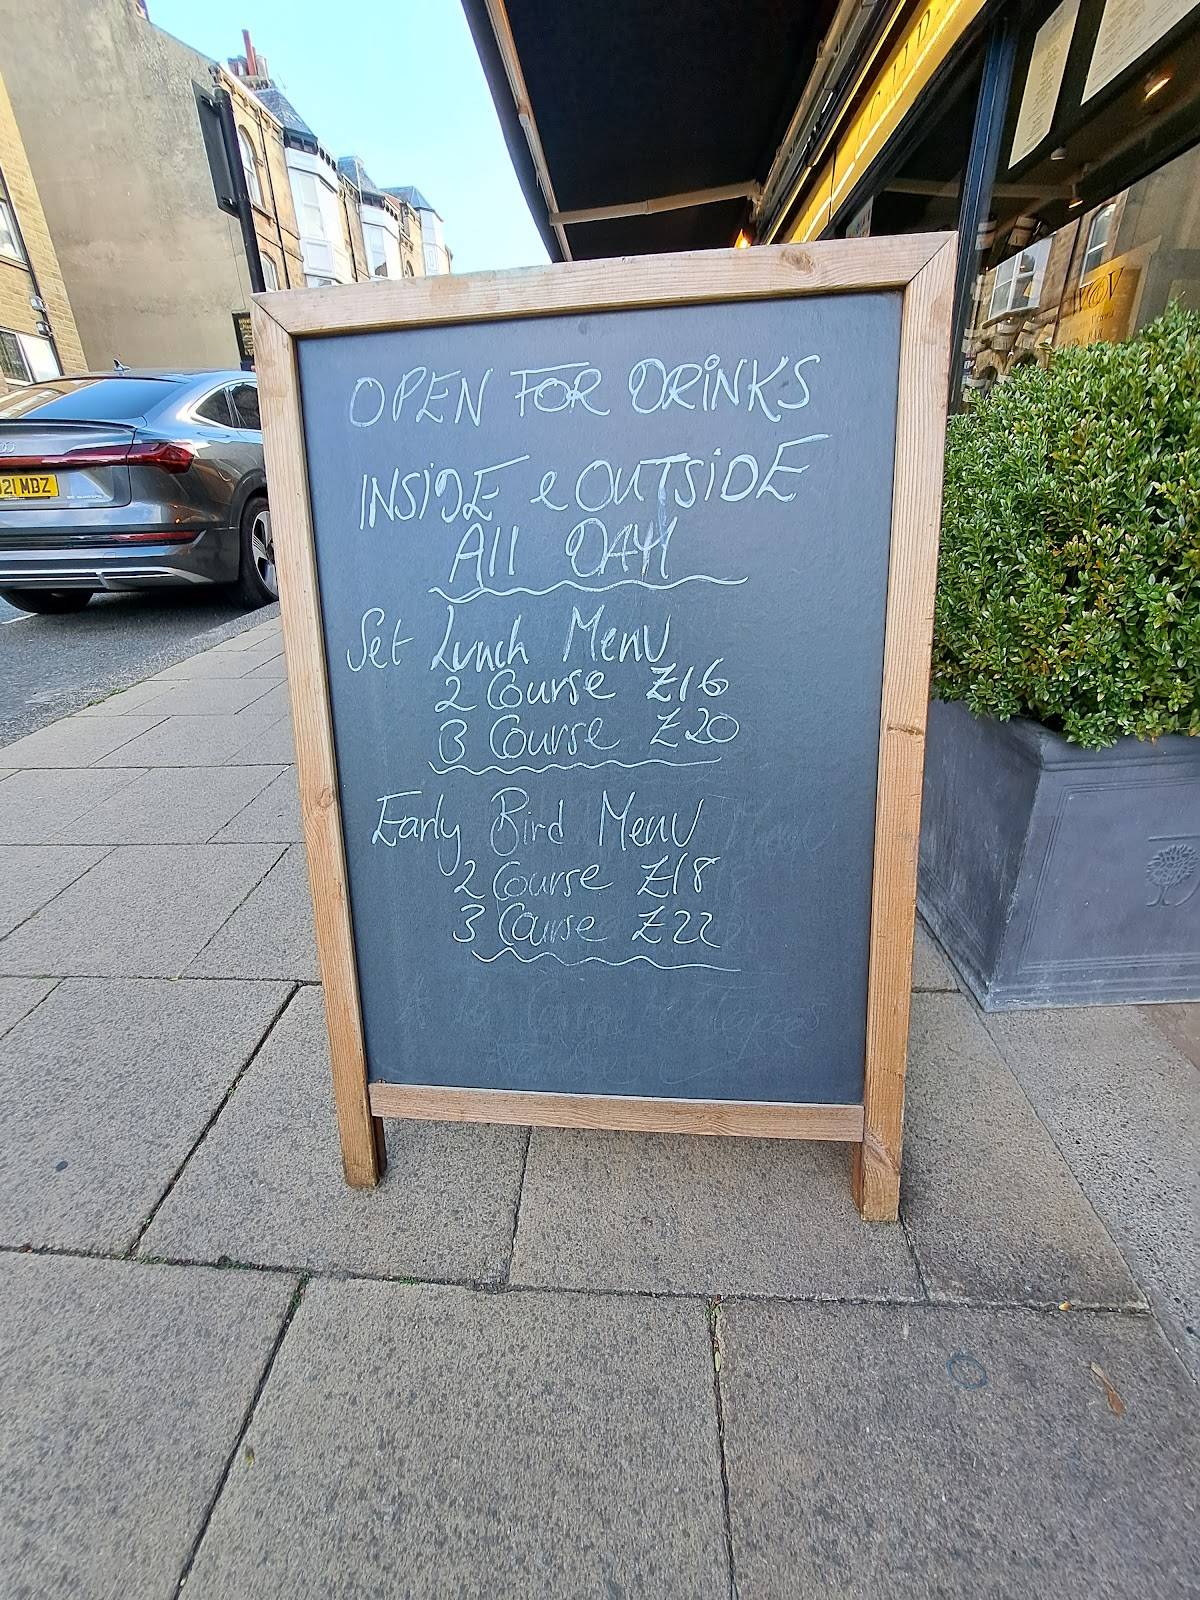 OPEN FOR DRINKS
INSIDE & OUTSIDE
All DAY!
Set Lunch Menu
2 Course £16
3 Course £20
Early Bird Menu
2 Course £18
3 Course £22
021 MDZ
V&V